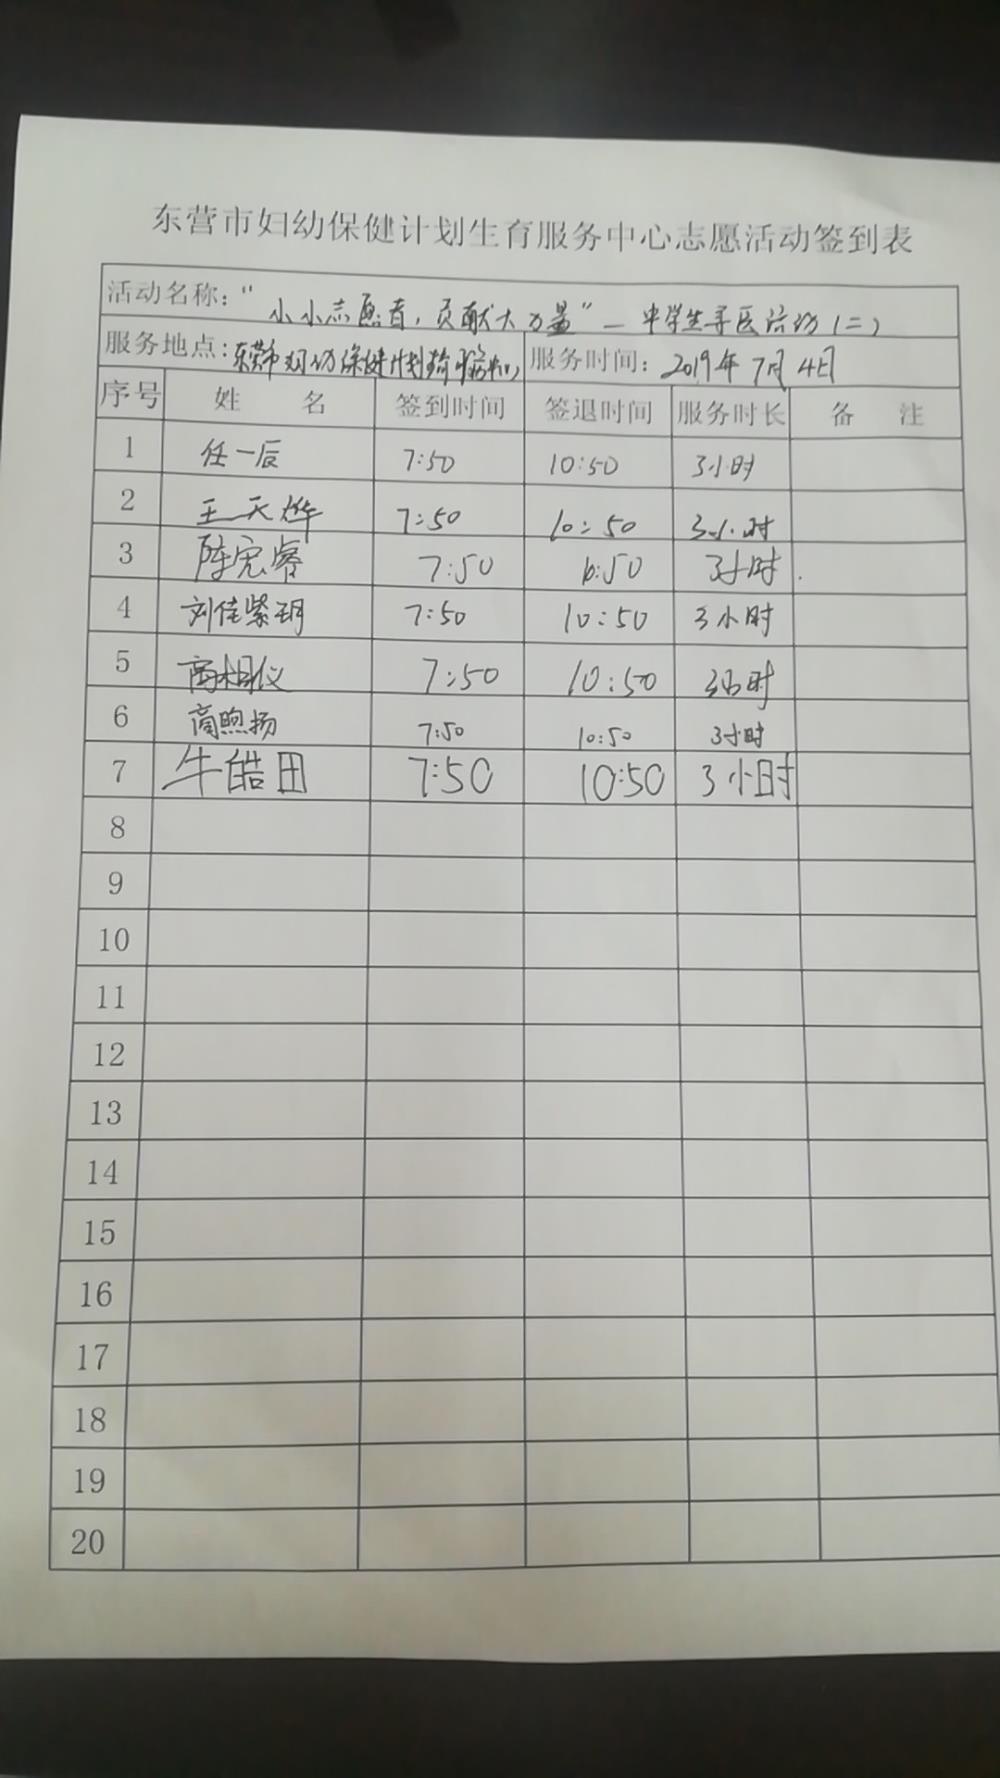 东营市妇幼保健计划生育服务中心志愿活动签到表
活动名称：“小小志愿者，贡献大力量”—中学生寻医活动（二）
服务地点：东营市妇幼保健计划 服务时间：2019年7月4日
序号 姓名 签到时间 签退时间 服务时长 备注
1 任一后 7:50 10:50 3小时
2 王天烨 7:50 10:50 3小时
3 陈宏睿 7:50 10:50 3小时
4 刘佳紫玥 7:50 10:50 3小时
5 高相仪 7:50 10:50 3小时
6 高煦扬 7:50 10:50 3小时
7 牛皓田 7:50 10:50 3小时
8
9
10
11
12
13
14
15
16
17
18
19
20